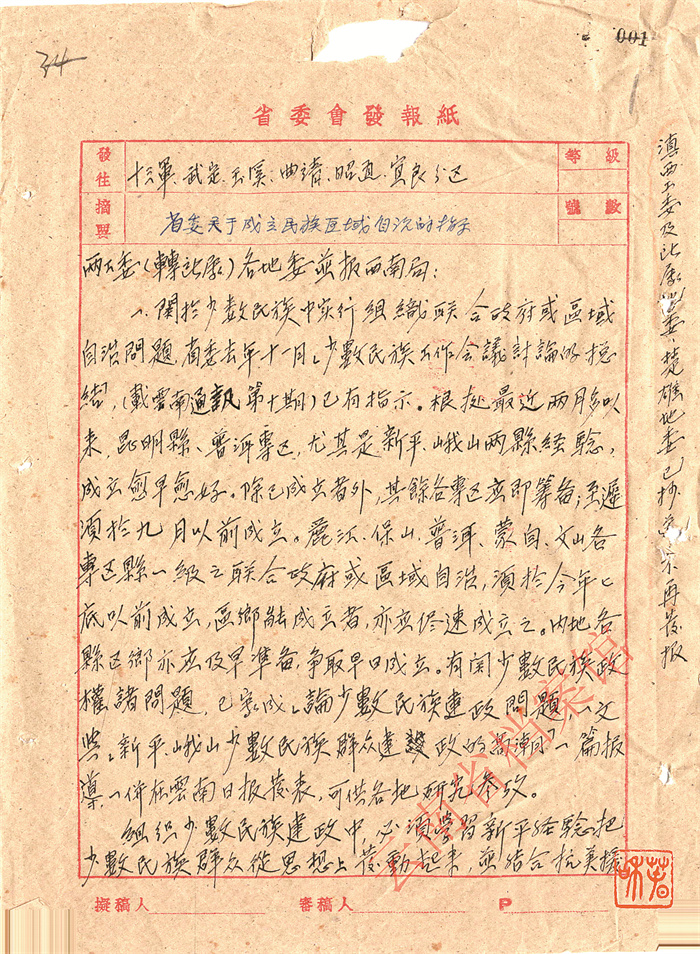 34
001
1
省委會發報紙
發往
十三軍、武定、玉溪、曲靖、昭通、宜良分区
等級
摘與
省委关于成立民族区域自治的指示
號數
两工委（轉
）各地委并报西南局：
一、関於少數民族中实行組織联合政府或区域
自治問題，省委去年十一月「少數民族工作会議討論的捴
結」，（載雲南通訊第十期）已有指示。根据最近两月多以
来，昆明縣、普洱專区，尤其是新平、峨山两縣経驗，
成立愈早愈好。除已成立者外，其餘各專区立即籌备，至遲
須於九月以前成立。麗江、保山、普洱、蒙自、文山各
專区縣一級之联合政府或区域自治，須於今年
底以前成立，区鄉能成立者，亦应尽速成立之。内地各
縣区鄉亦应及早準备，争取早日成立。有関少數民族政
權諸問題，已寫成「論少數民族建政問題」一文
與「新平峨山少數民族群众建政的高潮」一篇报
導，一併在雲南日报發表，可供各地研究参攷。
組织少數民族建政中，必須学習新平経驗把
少數民族群众從思想上發動起来，並结合抗美援
滇西工委及
地委、楚雄地委已抄
不再發报
云南省档案馆
擬稿人
審稿人
P